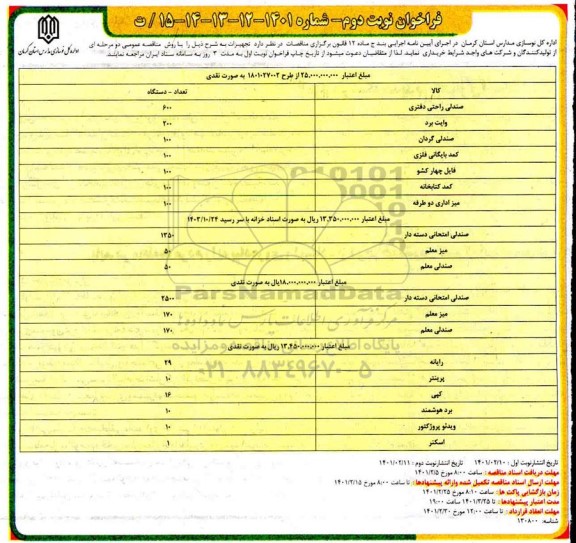 فراخوان نوبت دوم- شماره ۱۴۰۱-۱۲-۱۳-۱۴-۱۵ / ت
اداره کل نوسازی مدارس استان کرمان
اداره کل نوسازی مدارس استان کرمان در اجرای آیین نامه اجرایی بند ج ماده ۱۲ قانون برگزاری مناقصات در نظر دارد تجهیزات به شرح ذیل را با روش مناقصه عمومی دو مرحله ای
از تولیدکنندگان و شرکت های واجد شرایط خریداری نماید. لذا از متقاضیان دعوت میشود از تاریخ چاپ فراخوان نوبت اول به مدت ۳ روز به سامانه ستاد ایران مراجعه نمایند.
مبلغ اعتبار ۲۵,۰۰۰,۰۰۰,۰۰۰ از طرح ۱۸۰۱۰۲۷۰۰۲ به صورت نقدی
کالا تعداد - دستگاه
صندلی راحتی دفتری ۶۰۰
وایت برد ۲۰۰
صندلی گردان ۱۰۰
کمد بایگانی فلزی ۱۰۰
فایل چهار کشو ۱۰۰
کمد کتابخانه ۱۰۰
میز اداری دو طرفه ۱۰۰
مبلغ اعتبار ۱۳,۳۵۰,۰۰۰,۰۰۰ ریال به صورت اسناد خزانه با سر رسید ۱۴۰۳/۱۰/۲۴
صندلی امتحانی دسته دار ۱۳۵۰
میز معلم ۵۰
صندلی معلم ۵۰
مبلغ اعتبار ۱۸,۰۰۰,۰۰۰,۰۰۰ریال به صورت نقدی
صندلی امتحانی دسته دار ۲۵۰۰
میز معلم ۱۷۰
صندلی معلم ۱۷۰
مبلغ اعتبار ۱۳,۴۵۰,۰۰۰,۰۰۰ ریال به صورت نقدی
رایانه ۲۹
پرینتر ۱۰
کپی ۱۶
برد هوشمند ۱۰
ویدئو پروژکتور ۱۰
اسکنر ۱
ParsNamadData
پایگاه اطلاع رسانی مناقصه و مزایده
۰۲۱ ۸۸۳۴۹۶۷۰ ۵
تاریخ انتشارنوبت اول : ۱۴۰۱/۰۲/۱۰ تاریخ انتشارنوبت دوم : ۱۴۰۱/۰۲/۱۱
مهلت دریافت اسناد مناقصه: ساعت ۸:۰۰ مورخ ۱۴۰۱/۲/۵
مهلت ارسال اسناد مناقصه تکمیل شده وارائه پیشنهادها: تا ساعت ۸:۰۰ مورخ ۱۴۰۱/۲/۱۵
زمان بازگشایی پاکت ها: ساعت ۸:۱۰ مورخ ۱۴۰۱/۲/۲۵
مدت اعتبار پیشنهادها: تا ۱۴۰۱/۳/۲۵ ساعت ۱۹:۰۰
مهلت انعقاد قرارداد: تا ساعت ۱۲:۰۰ مورخ ۱۴۰۱/۲/۳۰
شناسه: ۱۳۰۸۰۰